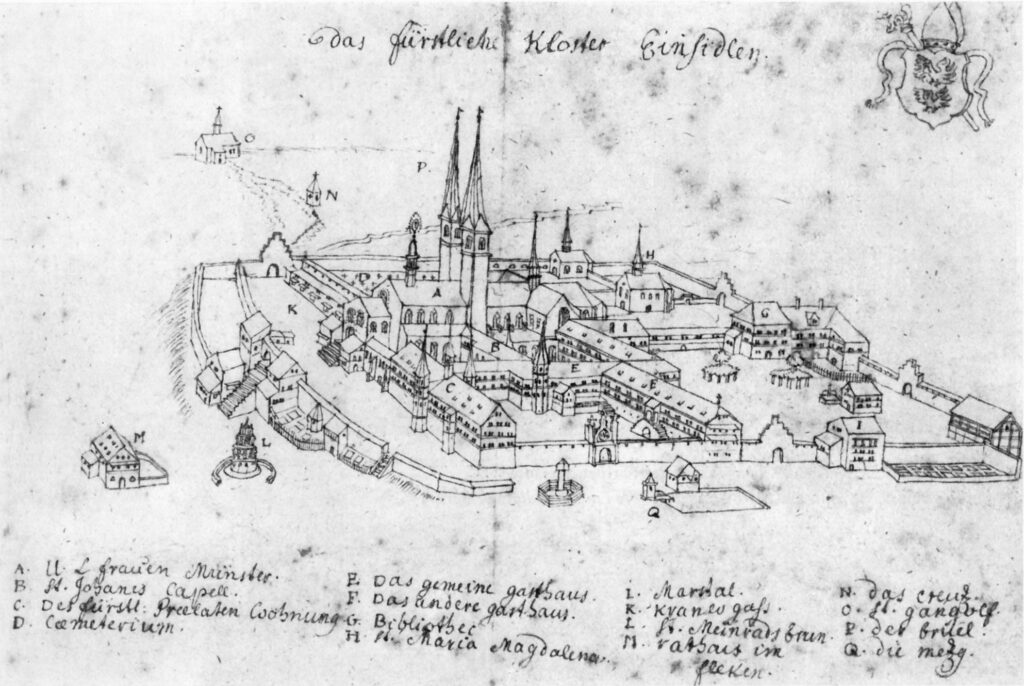 das fürstliche Kloster Einsidlen.
O
P
N
H
A
K
G
B
E
C
F
I
M
L
Q
A. U. L frauen Münster.
B St. Johanes Capell.
C. Der fürstl: Preelaten Woohnung
D. Cœmeterium.
E. Das gemeine gasthaus.
F. Das andere gasthaus.
G. Bibliothec
H St. Maria Magdalena.
I. Marstal.
K. Kranes gass.
L. St. Meinrads brun.
M. rathaus im
fleken.
N. das creuz.
O. St. gangolf.
P. der brüel.
Q. die mezg.